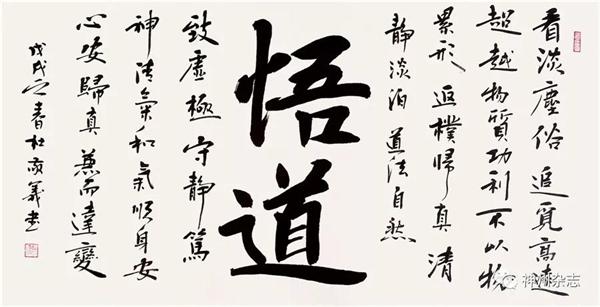 看淡塵俗 追覓高遠
超越物質功利 不以物
累形 返樸歸真 清
靜淡泊 道法自然
悟道
致虛極 守靜篤
神清氣和氣順身安
心安歸真 兼而達變
戊戌之春杜義書
神州杂志